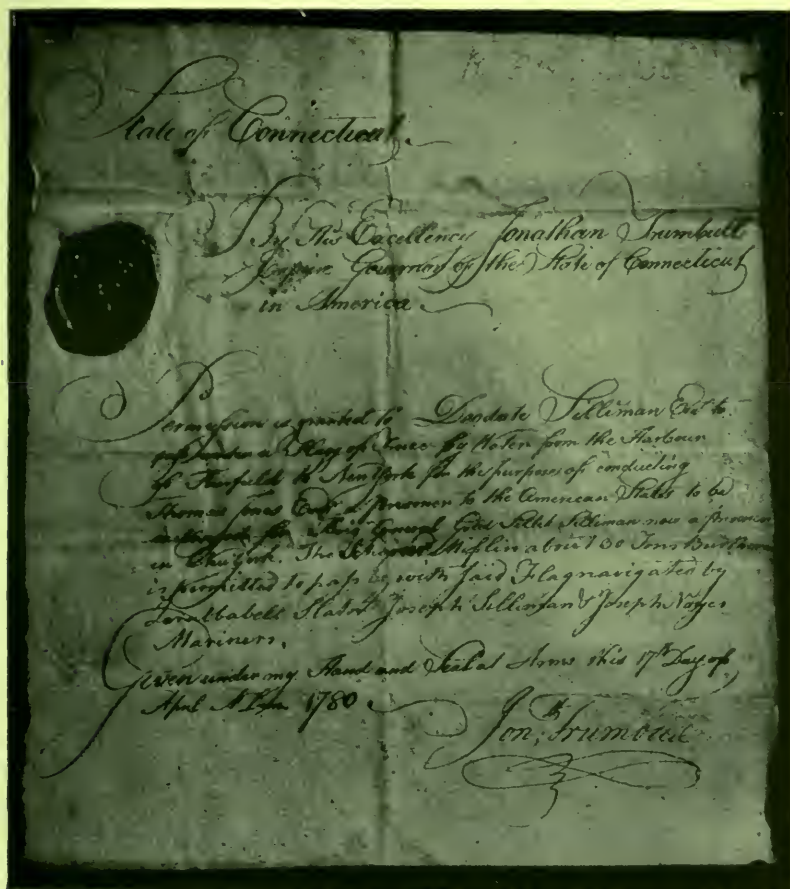 State of Connecticut
By His Excellency Jonathan Trumbull
Esquire Governor of the State of Connecticut
in America
Permission is granted to Deodate Silliman Esqr to
pass under a Flag of Truce by Water from the Harbour
of Fairfield to New York for the purposes of conducting
Thomas Jones Esqr a prisoner to the American States to be
exchanged for Brigr General Gold Selleck Silliman now a prisoner
in New York. The Mifflin about 30 Tons Burthen
is permitted to pass with said Flag navigated by
Slater Joseph Silliman & Joseph Noyes
Mariners.
Given under my Hand and Seal at Arms this 17th Day of
April A Dom 1780
Jonth Trumbull